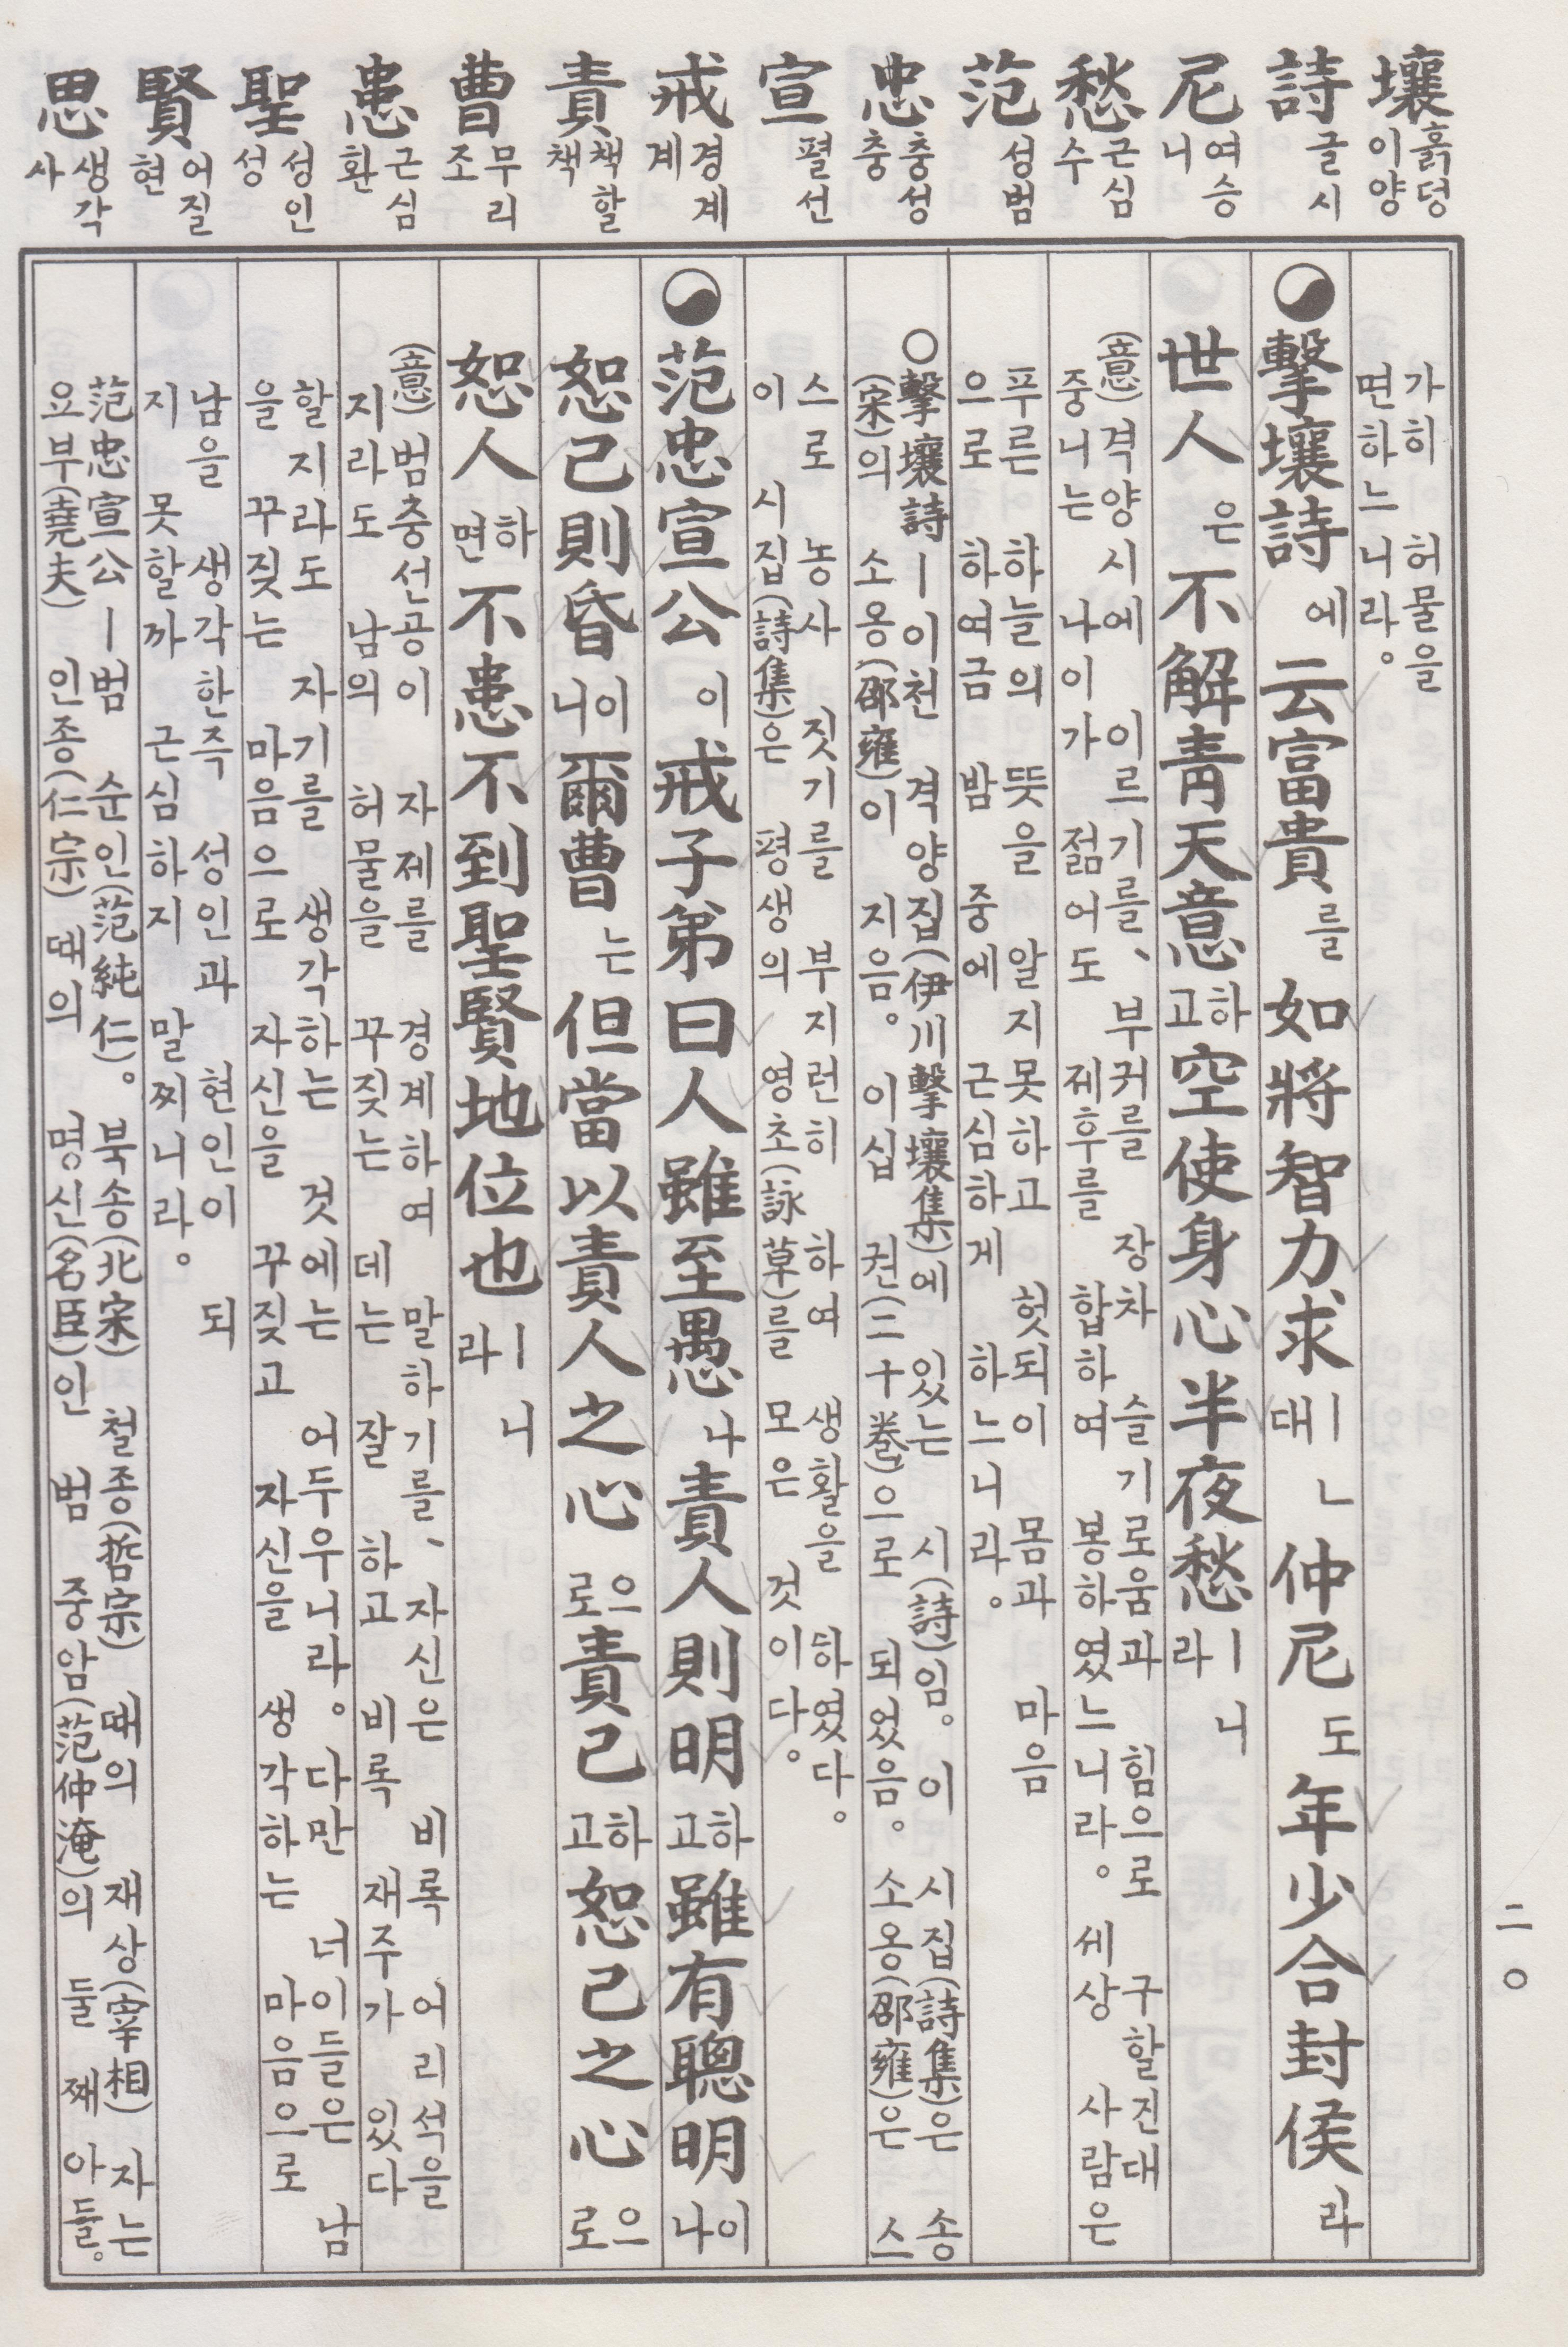 壤 흙덩이 양
詩 글 시
尼 여승 니
愁 근심 수
范 성 범
忠 충성 충
宣 펼 선
戒 경계 계
責 책할 책
曹 무리 조
患 근심 환
聖 성인 성
賢 어질 현
思 생각 사
가히 허물을
면하느니라。
擊壤詩에 云富貴를 如將智力求ㅣㄴ대 仲尼도 年少合封侯라
世人은 不解靑天意하고 空使身心半夜愁ㅣ니라
(意) 격양시에 이르기를、 부귀를 장차 슬기로움과 힘으로 구할진대
중니는 나이가 젊어도 제후를 합하여 봉하였느니라。 세상 사람은
푸른 하늘의 뜻을 알지 못하고 헛되이 몸과 마음
으로 하여금 밤중에 근심하게 하느니라。
○擊壤詩ㅣ이천 격양집(伊川擊壤集)에 있는 시(詩)임。 이 시집(詩集)은 송
(宋)의 소옹(邵雍)이 지음。 이십 권(二十卷)으로 되었음。 소옹(邵雍)은 스
스로 농사 짓기를 부지런히 하여 생활을 하였다。
이 시집(詩集)은 평생의 영초(詠草)를 모은 것이다。
范忠宣公이 戒子弟曰人雖至愚나 責人則明하고 雖有聰明이나
恕己則昏이니 爾曹는 但當以責人之心으로 責己하고 恕己之心으로
恕人하면 不患不到聖賢地位也ㅣ니라
(意) 범충선공이 자제를 경계하여 말하기를、 자신은 비록 어리석을
지라도 남의 허물을 꾸짖는 데는 잘 하고 비록 재주가 있다
할지라도 자기를 생각하는 것에는 어두우니라。 다만 너이들은 남
을 꾸짖는 마음으로 자신을 꾸짖고 자신을 생각하는 마음으로
남을 생각한즉 성인과 현인이 되
지 못할까 근심하지 말찌니라。
范忠宣公ㅣ범 순인(范純仁)。 북송(北宋) 철종(哲宗) 때의 재상(宰相) 자는
요부(堯夫) 인종(仁宗) 때의 명신(名臣)인 범 중암(范仲淹)의 둘째 아들。
二〇